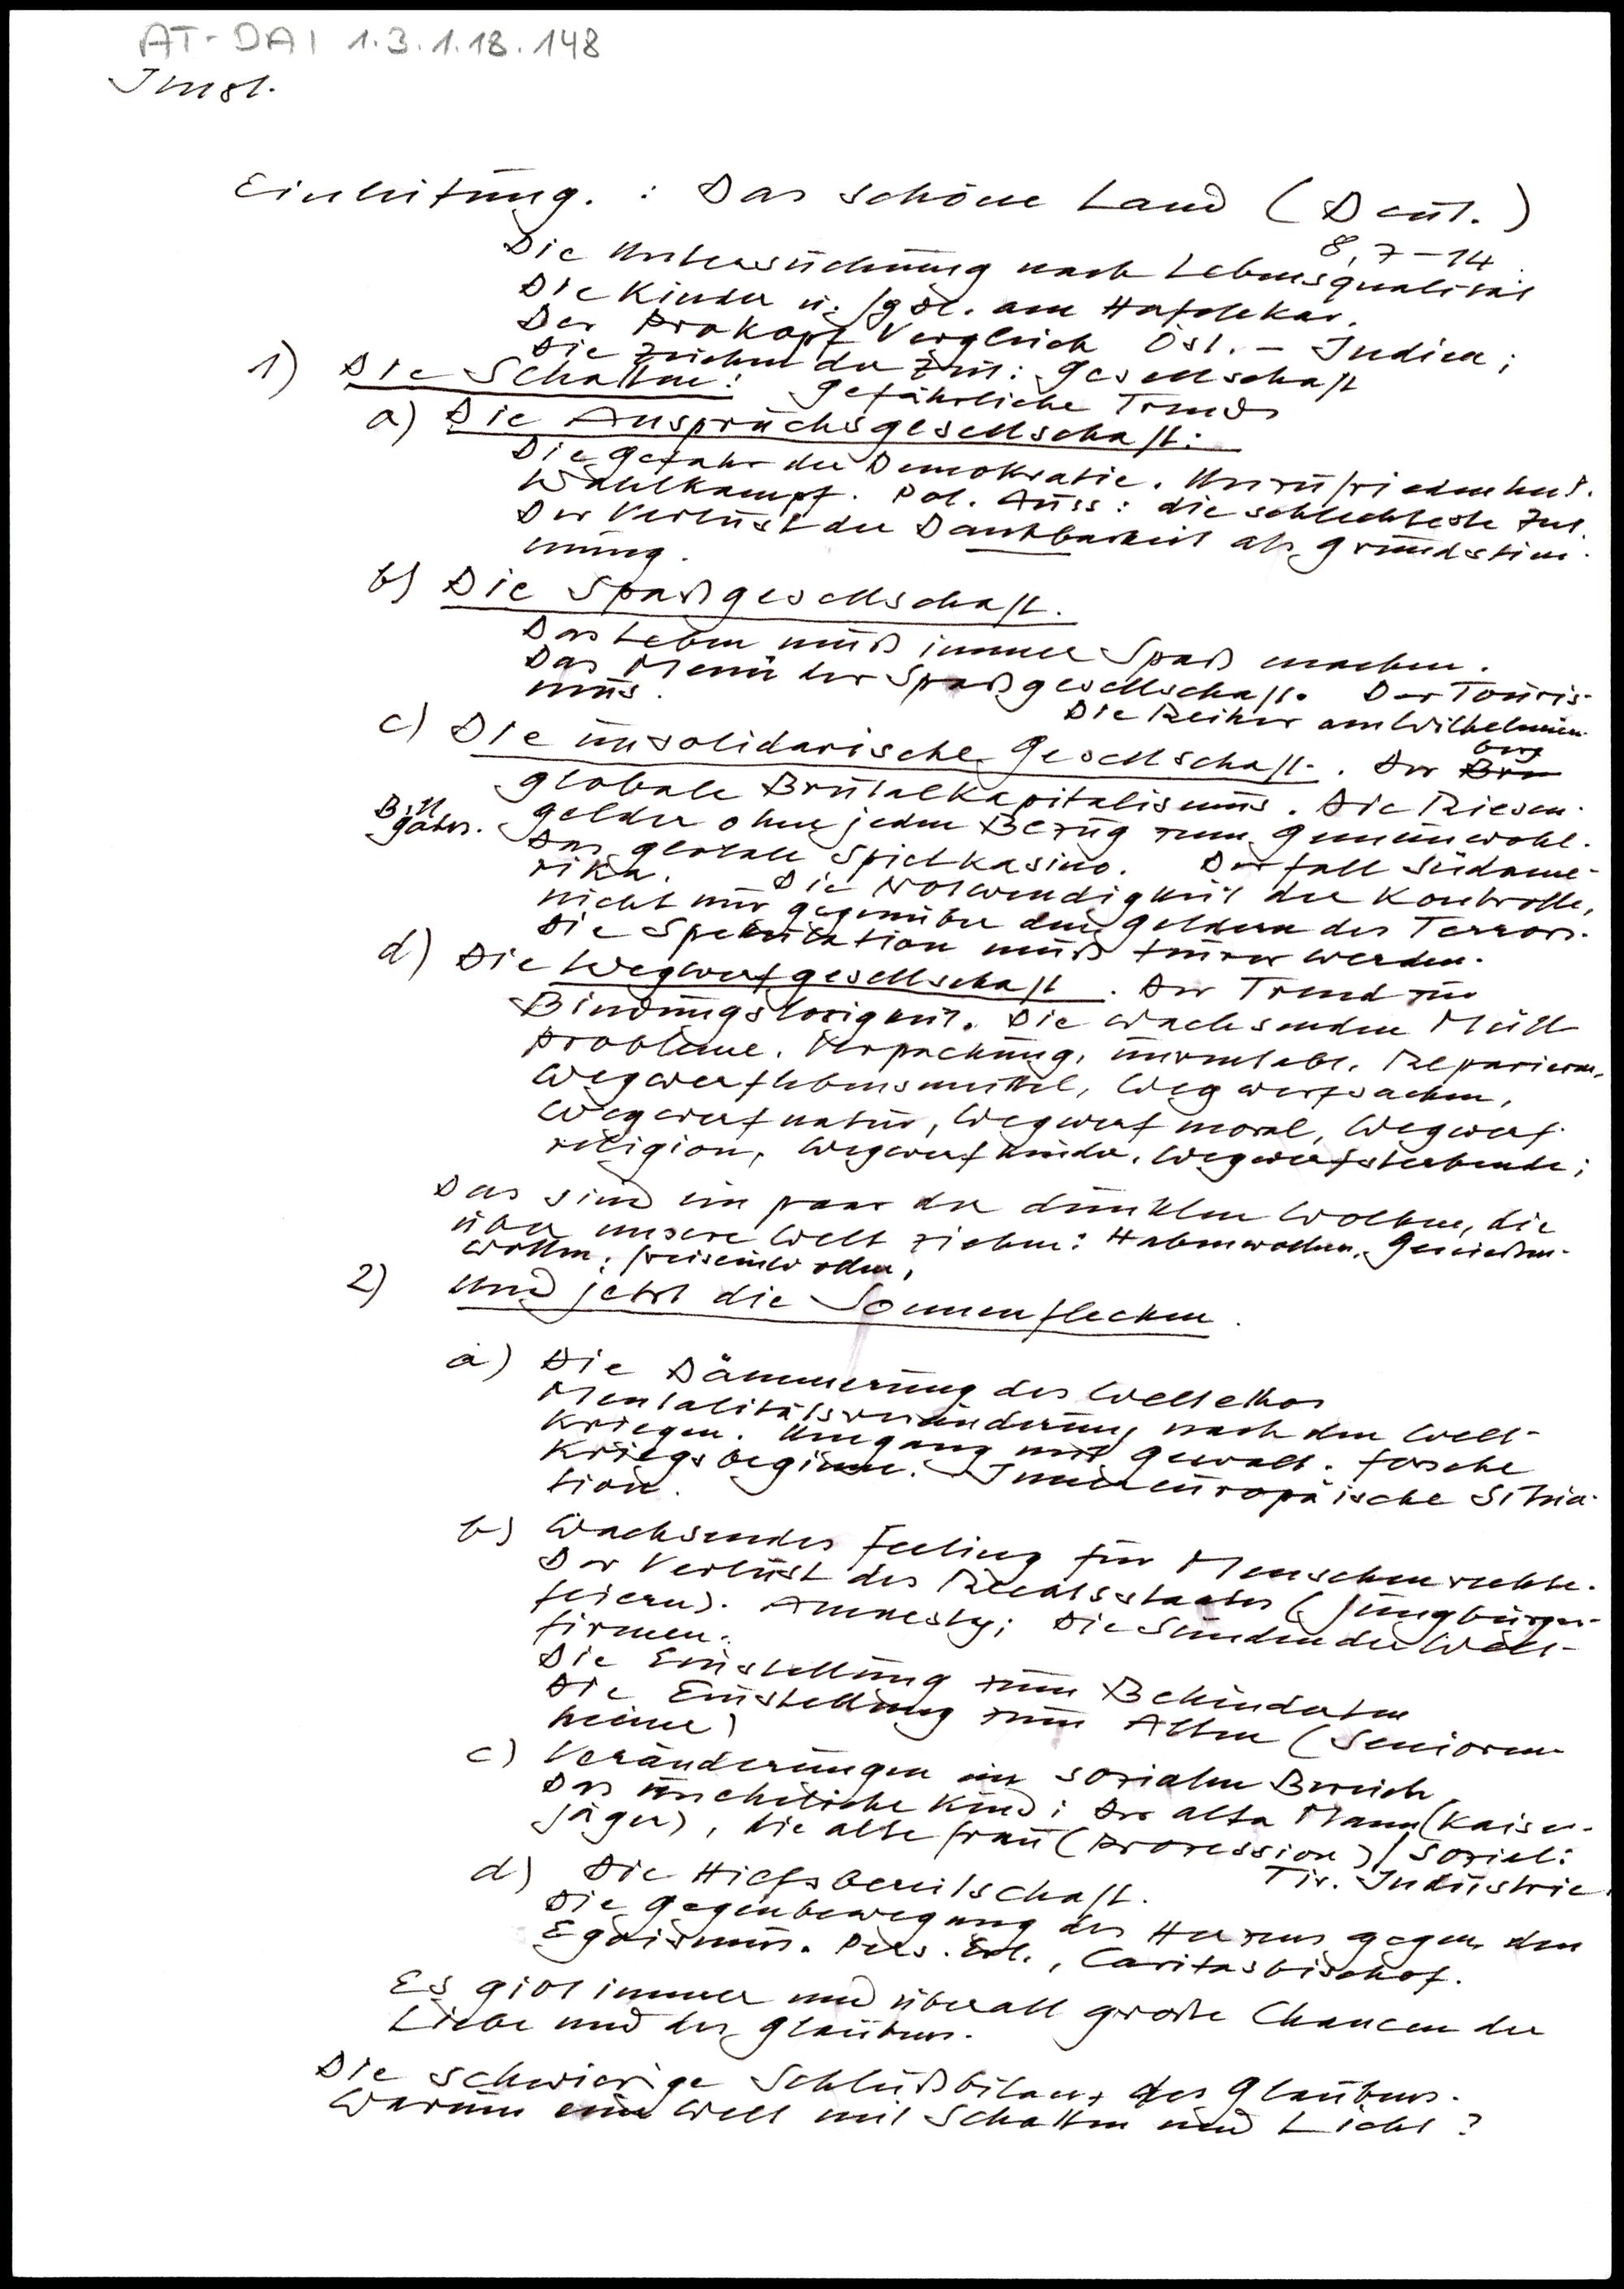 AT-DAI 1.3.1.18.148
Jmst.
Einleitung. : Das schöne Land (Deut.)
8, 7-14
Die Untersuchung nach Lebensqualität
Die Kinder u. am Hafelekar.
Der Prokopf Vergleich Öst. - Indien;
Die Zeichen der Zeit: Gesellschaft
1) Die Schatten: gefährliche Trends
a) Die Anspruchsgesellschaft:
Die Gefahr der Demokratie. Unzufriedenheit.
Wahlkampf. Pol. Auss: die schlechteste Zeit.
Der Verlust der Dankbarkeit als Grundstim-
mung.
b) Die Spaßgesellschaft.
Das Leben muß immer Spaß machen.
Das Menü der Spaßgesellschaft. Der Touris-
mus.
Die Reiher am Wilhelminen-
berg
c) Die unsolidarische Gesellschaft. Der
globale Brutalkapitalismus. Die Riesen-
Bill
Gates.
gelder ohne jeden Bezug zum Gemeinwohl.
Das globale Spielkasino. Der Fall Südame-
rika. Die Notwendigkeit der Kontrolle,
nicht nur gegenüber den Geldern des Terrors.
Die Spekulation muß teurer werden.
d) Die Wegwerfgesellschaft. Der Trend zur
Bindungslosigkeit. Die wachsenden Müll
probleme. Verpackung, unrentabl. Reparieren,
Wegwerflebensmittel, Wegwerfsachen,
Wegwerfnatur, Wegwerfmoral, Wegwerf-
religion, Wegwerfkinder, Wegwerfsterbende;
Das sind ein paar der dunklen Wolken, die
über unsere Welt ziehen: Habenwollen, Genießen-
wollen, freiseinwollen,
2) Und jetzt die Sonnenflecken.
a) Die Dämmerung des Weltethos
Mentalitätsveränderung nach den Welt-
kriegen. Umgang mit Gewalt. forsche
Kriegsbeginne. Innereuropäische Situa-
tion.
b) Wachsendes Feeling für Menschenrechte.
Der Verlust des Rechtsstaates (Jungbürger-
feiern). Amnesty; Die Sünden der Welt-
firmen.
Die Einstellung zum Behinderten
Die Einstellung zum Alten (Senioren-
heime)
c) Veränderungen im sozialen Bereich
Das uneheliche Kind; Der alte Mann (Kaiser-
jäger), die alte Frau (Prozession)/Soziel:
Tir. Industrie
d) Die Hilfsbereitschaft.
Die Gegenbewegung des Herzens gegen den
Egoismus. Pers. Erl., Caritasbischof.
Es gibt immer und überall große Chancen der
Liebe und des Glaubens.
Die schwierige Schlußbilanz des Glaubens.
Warum eine Welt mit Schatten und Licht?